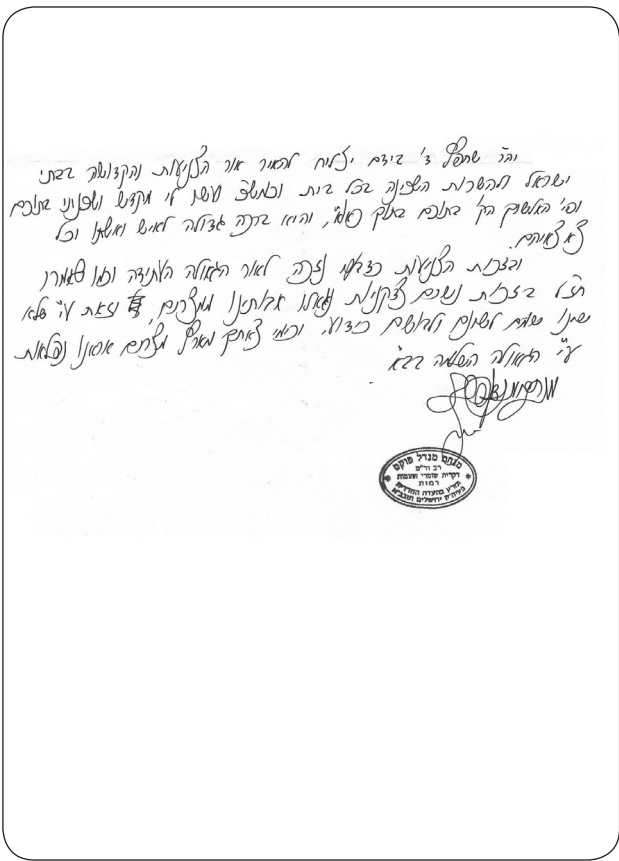 ויה״ר שחפץ ד׳ בידם יצליח להאיר אור הצניעות והקדושה בבתי
ישראל ולהשרות השכינה בכל בית וכמש״כ ועשו לי מקדש ושכנתי בתוכם
ופי׳ האלשיך הק׳ בתוכם בתוך כאו״א, והיא ברכה גדולה לאיש ואשתו וכל
צאצאיהם.
ובזכות הצניעות כדבעי נזכה לאור הגאולה העתידה וכמו שאמרו
חז״ל בזכות נשים צדקניות נגאלו אבותינו ממצרים, וזאת ע״י שלא
שינו שמם לשונם ולבושם כידוע, וכימי צאתם מארץ מצרים אראנו נפלאות
ע״י הגאולה השלמה בב״א
מנחם מנדל פוקס
רב ור״מ
דקרית שומרי החומות
רמות
פעיה״ק ירושלים תובב״א